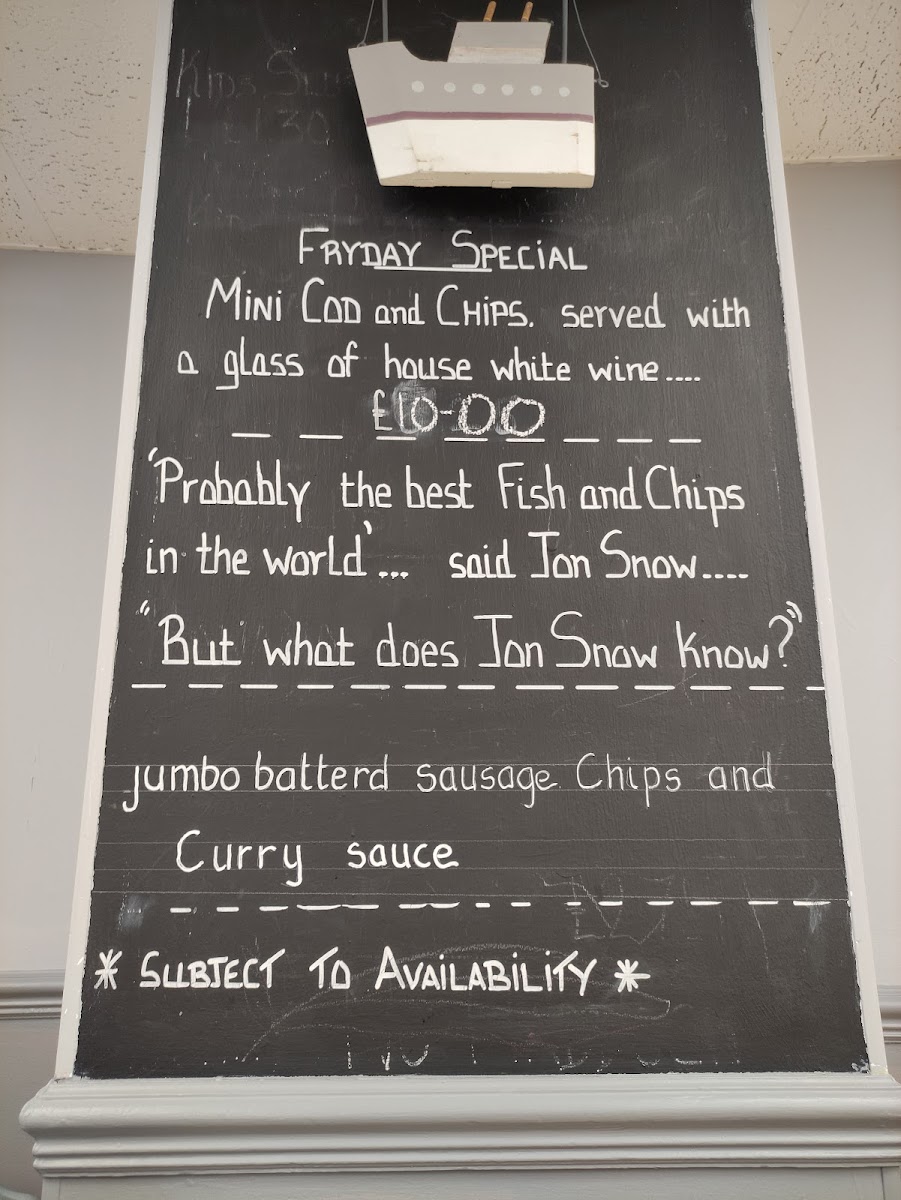 Kids
FRYDAY SPECIAL
MINI COD and CHIPS. served with
a glass of house white wine....
£10-00
'Probably the best Fish and Chips
in the world'... said Jon Snow....
"But what does Jon Snow know?"
jumbo batterd sausage Chips and
Curry sauce
* SUBJECT TO AVAILABILITY *